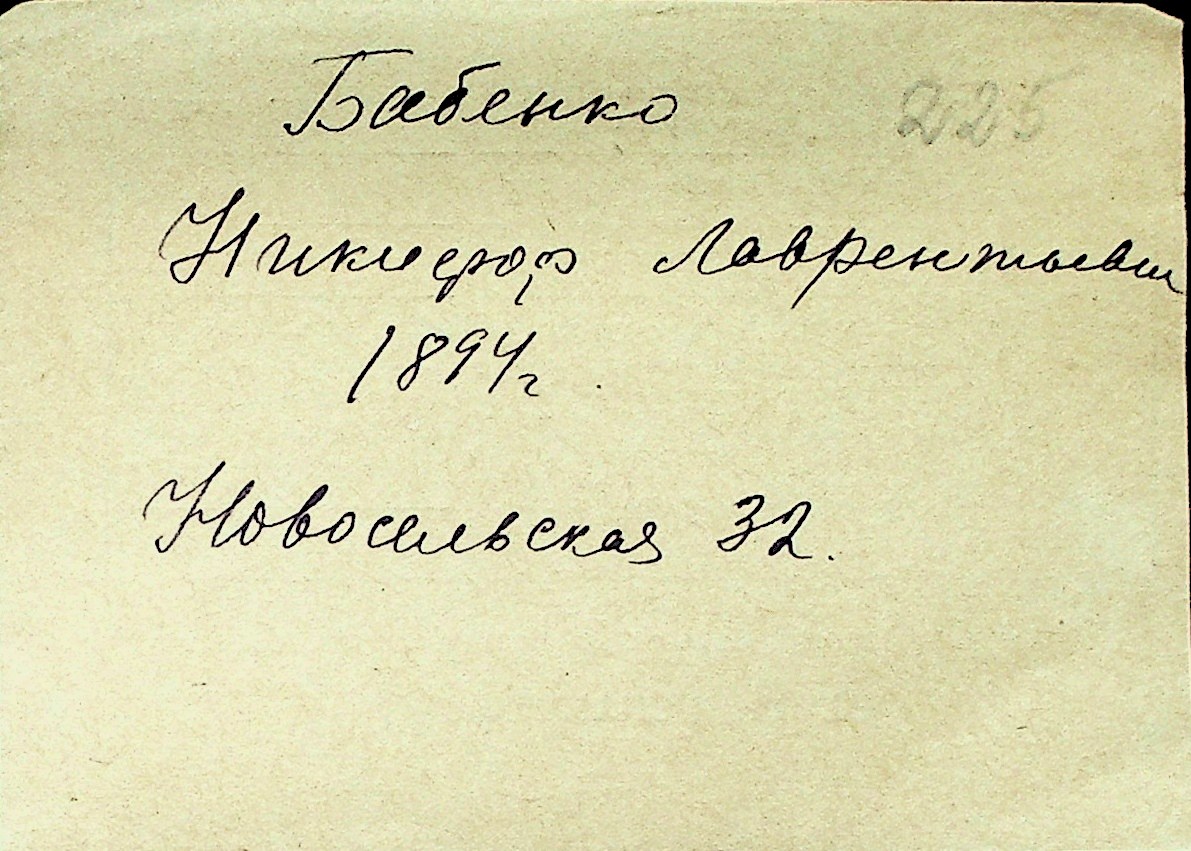 Бабенко 225
Никифор Лаврентьеви
1894г.
Новосельская 32.